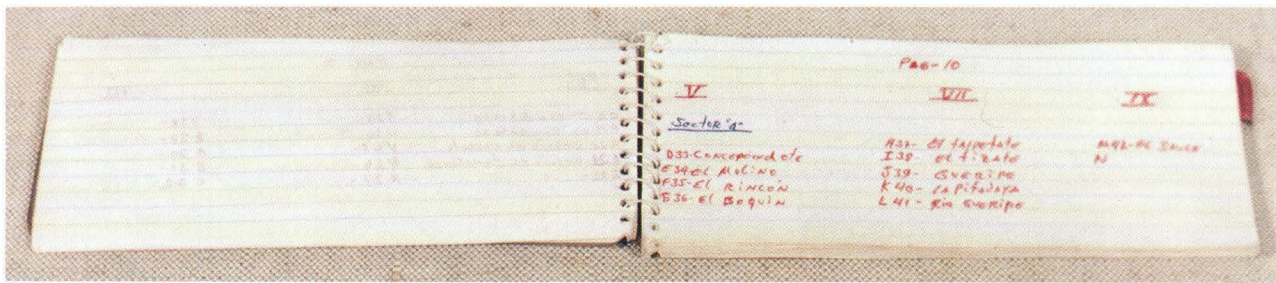 PAG-10
V
Sector "a"
D33-Concepcion de ote
E34-EL MOLINO
F35-El RINCÓN
G36-El Boquin
VII
H37- El tappetate
I38- El tizate
J39- GUERIPO
K40- LA Pitahaya
L41- Rio Gueripo
IX
M42-EL Sauce
N